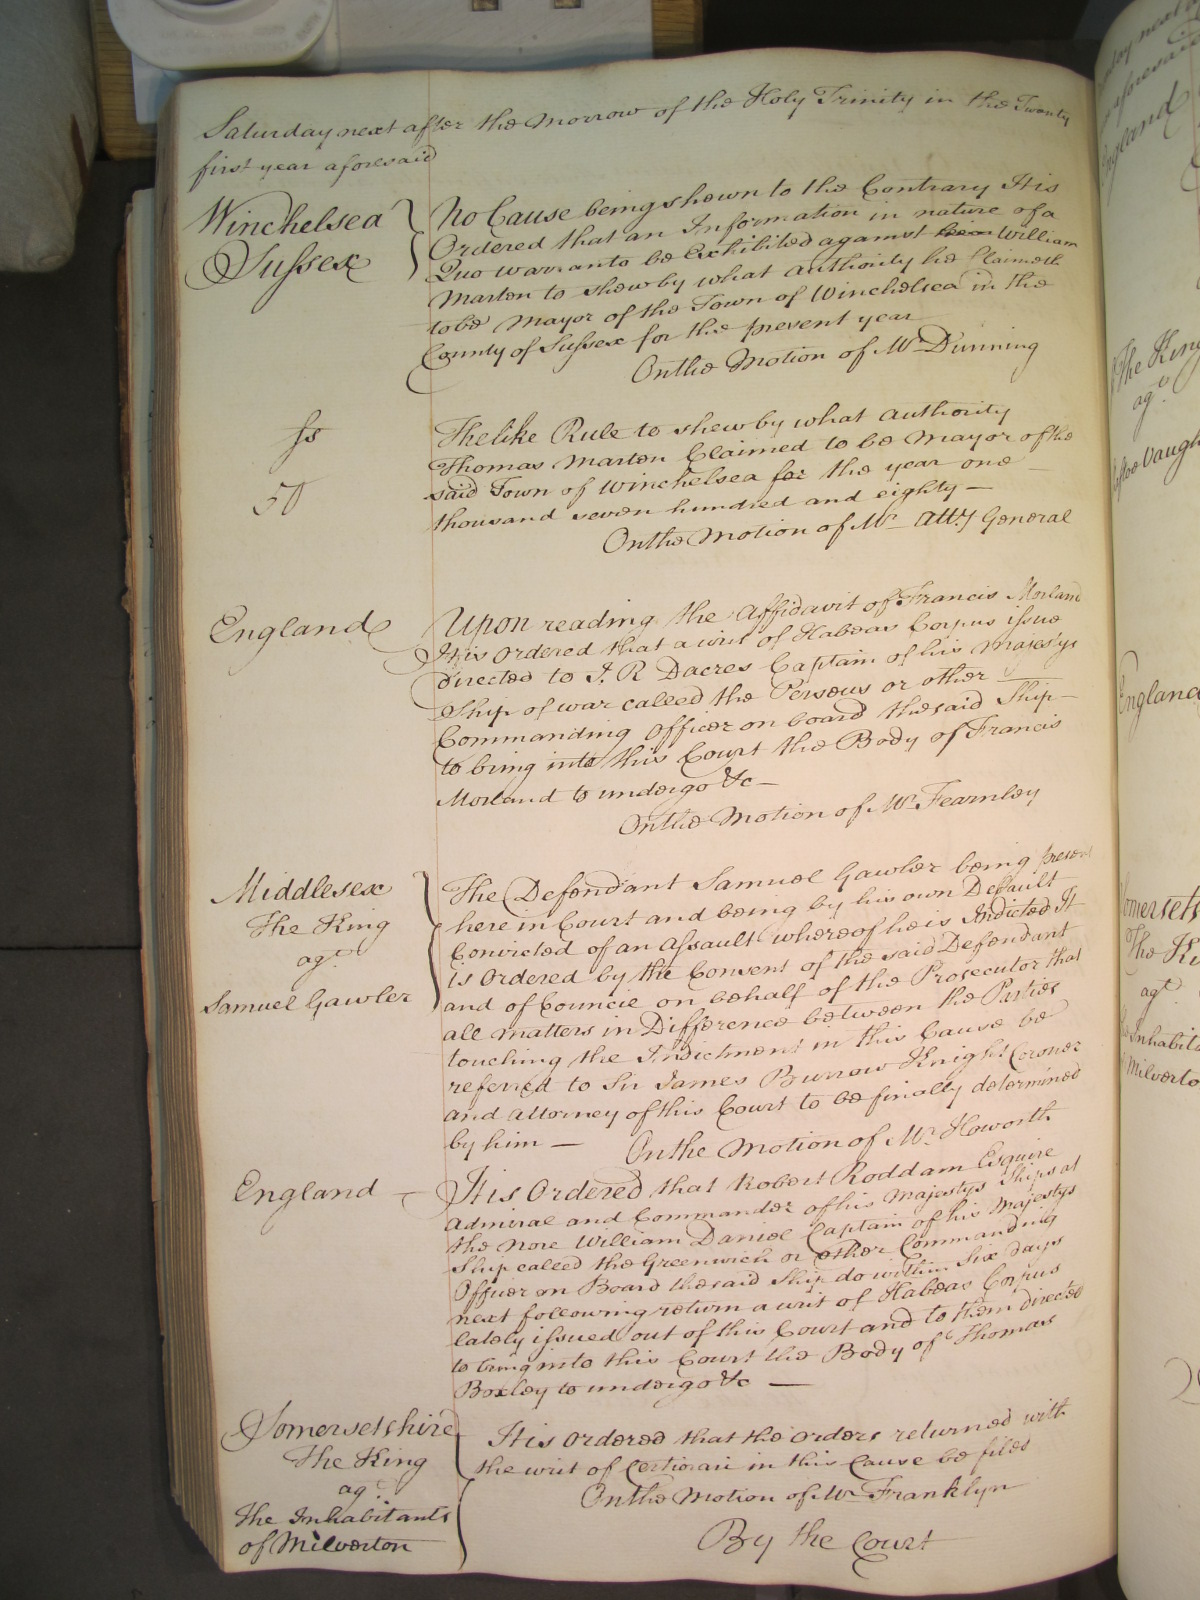 Saturday next after the Morrow of the Holy Trinity in the Twenty
first year aforesaid
Winchelsea
Sussex
No Cause being shewn to the Contrary It is
Ordered that an Information in nature of a
Quo warranto be Exhibited against William
Marten to shew by what Authority he Claimeth
to be Mayor of the Town of Winchelsea in the
County of Sussex for the present year
On the Motion of Mr. Dunning
The like Rule to shew by what Authority
Thomas Marten Claimed to be Mayor of the
said Town of Winchelsea for the year one
thousand seven hundred and eighty —
On the Motion of Mr. Atty General
England
Upon reading the Affidavit of Francis Morland
It is ordered that a writ of Habeas Corpus issue
directed to J. R Dacres Captain of his Majestys
Ship of war called the Perseus or other
Commanding Officer on board the said Ship
to bring into this Court the Body of Francis
Morland to undergo &c —
On the Motion of Mr. Fearnley
Middlesex
The King
agt.
Samuel Gawler
The Defendant Samuel Gawler being present
here in Court and being by his own Default
Convicted of an Assault whereof he is Indicted It
is Ordered by the Consent of the said Defendant
and of Councie on behalf of the Prosecutor that
all matters in Difference between the Parties
touching the Indictment in this Cause be
referred to Sir James Burrow Knight Coroner
and Attorney of this Court to be finally determined
by him — On the Motion of Mr. Howorth
England
It is Ordered that Robert Roddam Esquire
Admiral and Commander of his Majestys Ships at
the Nore William Daniel Captain of his Majestys
Ship called the Greenwich or other Commanding
Officer on Board the said Ship do within Six days
next following return a writ of Habeas Corpus
lately issued out of this Court and to them directed
to bring into this Court the Body of Thomas
Boxley to undergo &c —
Somersetshire
The King
agt.
The Inhabitants
of Milverton
It is Ordered that the Orders returned with
the writ of Certiorari in this Cause be filed
On the Motion of Mr. Franklyn
By the Court